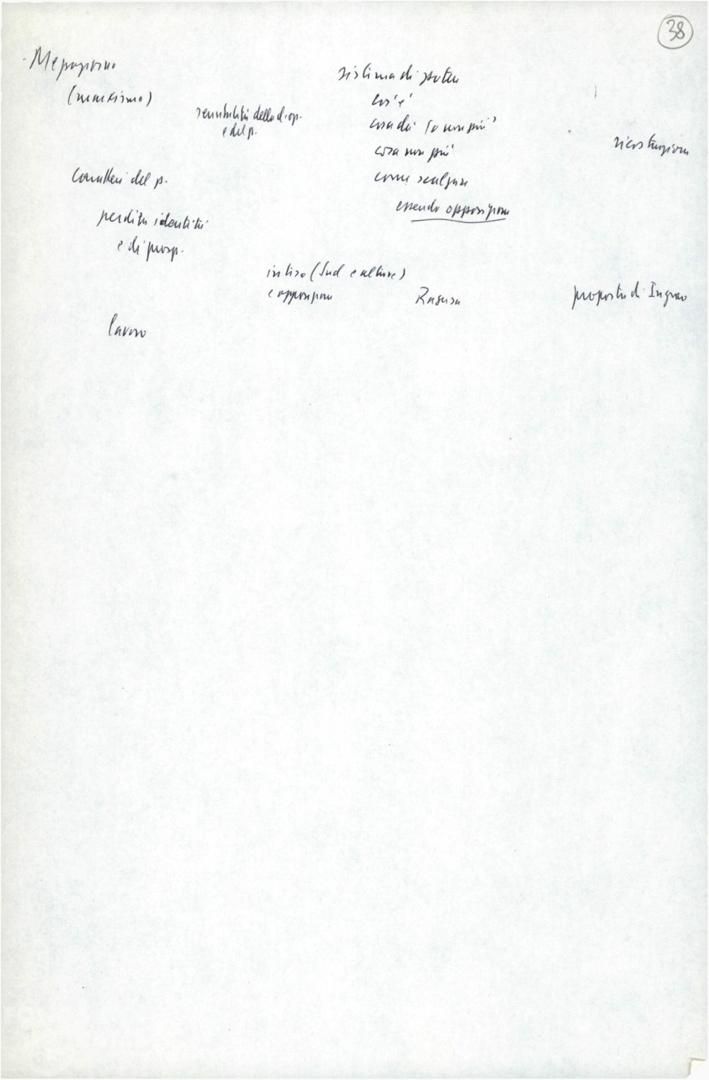 38
Mezzogiorno
(marxismo)
sensibilità della d. op.
e del p.
sistema di potere
cos'è
cosa dà (o non più)
cosa non più
come scalzare
essendo opposizione
ricostruzione
Caratteri del p.
perdita identità
e di prosp.
intesa (Sud e altrove)
e opposizione
Ragusa
proposta di Ingrao
lavoro